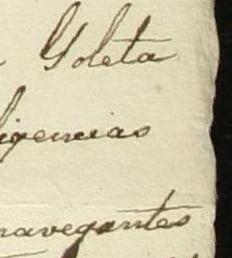 Goleta
ligencias
navegantes